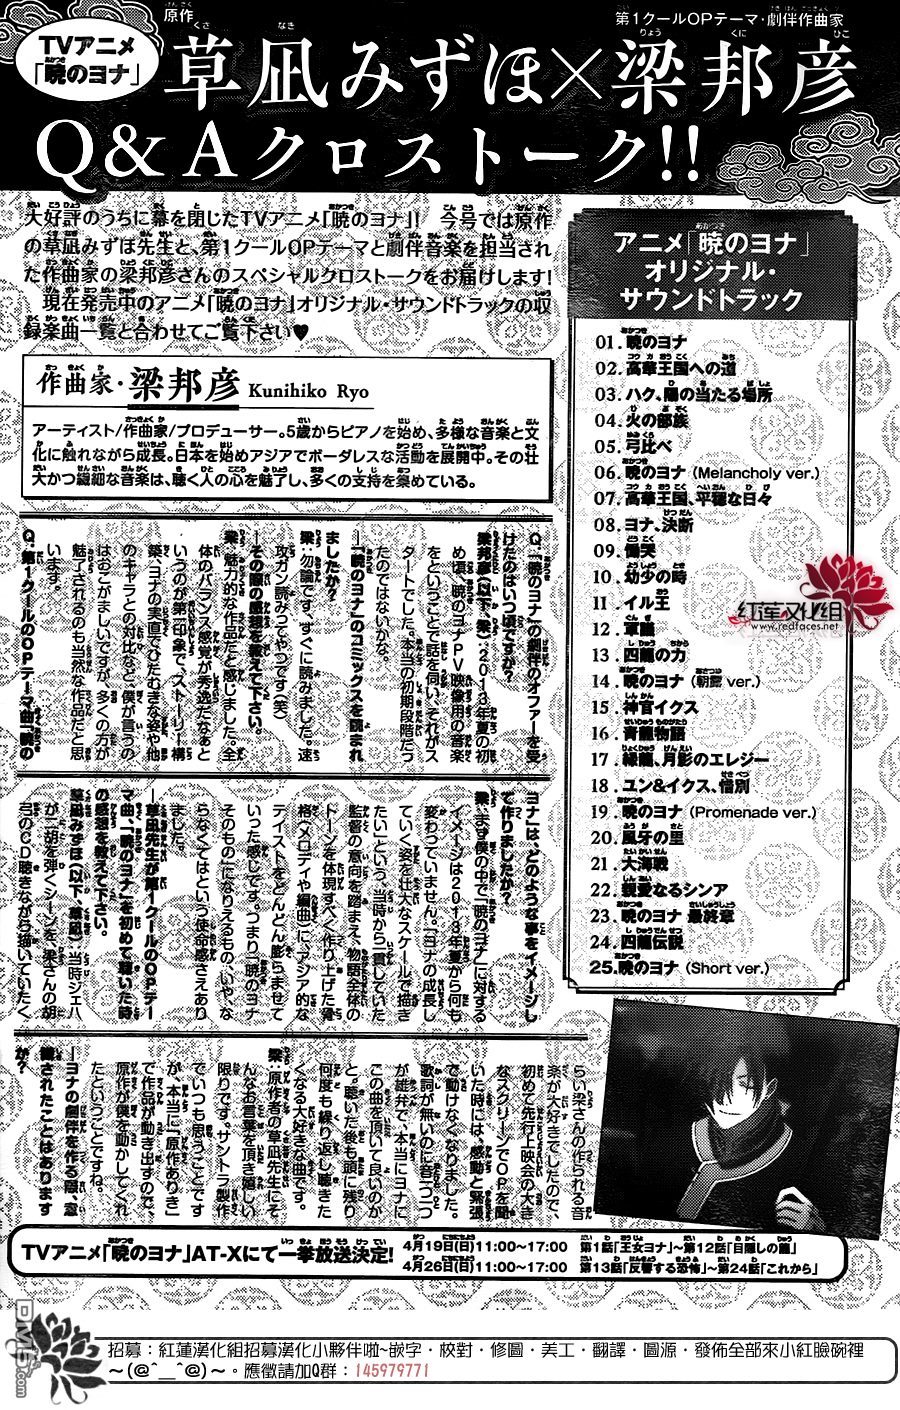 TVアニメ
「暁のヨナ」
原作
草凪みずほ×
第1クールOPテーマ・劇伴作曲家
梁邦彦
Q&Aクロストーク!!
大好評のうちに幕を閉じたTVアニメ「暁のヨナ」!! 今号では原作
の草凪みずほ先生と、第1クールOPテーマと劇伴音楽を担当され
た作曲家の梁邦彦さんのスペシャルクロストークをお届けします!
現在発売中のアニメ「暁のヨナ」オリジナル・サウンドトラックの収
録楽曲一覧と合わせてご覧下さい♥
作曲家・梁邦彦 Kunihiko Ryo
アーティスト/作曲家/プロデューサー。5歳からピアノを始め、多様な音楽と文
化に触れながら成長。日本を始めアジアでボーダレスな活動を展開中。その壮
大かつ繊細な音楽は、聴く人の心を魅了し、多くの支持を集めている。
アニメ「暁のヨナ」
オリジナル・
サウンドトラック
01. 暁のヨナ
02. 高華王国への道
03. ハク、陽の当たる場所
04. 火の部族
05. 弓比べ
06. 暁のヨナ (Melancholy ver.)
07. 高華王国、平穏な日々
08. ヨナ、決断
09. 慟哭
10. 幼少の時
11. イル王
12. 軍議
13. 四龍の力
14. 暁のヨナ (朝霧 ver.)
15. 神官イクス
16. 青龍物語
17. 緑龍、月影のエレジー
18. ユン&イクス、惜別
19. 暁のヨナ (Promenade ver.)
20. 風牙の里
21. 大海戦
22. 親愛なるシンア
23. 暁のヨナ 最終章
24. 四龍伝説
25. 暁のヨナ (Short ver.)
紅蓮汉化组
www.redfaces.net
Q.「暁のヨナ」の劇伴のオファーを受
けたのはいつ頃ですか?
梁邦彦(以下、梁):2013年夏の初
め頃、暁のヨナPV映像用の音楽
をということで話を伺い、それがス
タートでした。本当の初期段階だっ
たのではないかな。
―「暁のヨナ」のコミックスを読まれ
ましたか?
梁:勿論です。すぐに読みました。速
攻ガン読みってやつです(笑)
―その際の感想を教えて下さい。
梁:魅力的な作品だと感じました。全
体のバランス感覚が秀逸だなぁと
いうのが第一印象で、ストーリー構
築、ヨナの実直でひたむきな姿や他
のキャラとの対比など、僕が言うの
はおこがましいですが、多くの方が
魅了されるのも当然な作品だと思
います。
Q.第1クールのOPテーマ曲「暁の
ヨナ」は、どのような事をイメージし
て作りましたか?
梁:まず僕の中で「暁のヨナ」に対する
イメージは2013年夏から何も
変わっていません。「ヨナの成長し
ていく姿を壮大なスケールで描き
たい」という、当時から一貫していた
監督の意向を踏まえ、物語全体の
トーンを体現すべく作り上げた骨
格(メロディや編曲)に、アジア的な
テイストをどんどん膨らませて
いった感じです。つまり「暁のヨナ
そのもの」になりえるもの、いや、な
らなくてはという使命感さえあり
ました。
―草凪先生が第1クールのOPテー
マ曲、「暁のヨナ」を初めて聴いた時
の感想を教えて下さい。
草凪みずほ(以下、草凪):当時ジェハ
が二胡を弾くシーンを、梁さんの胡
弓のCD聴きながら描いていたく
らい梁さんの作られる音
楽が大好きでしたので、
初めて先行上映会の大き
なスクリーンでOPを聞
いた時には、感動と緊張
で動けなくなりました。
歌詞が無いのに音一つ一つ
が雄弁で、本当にヨナに
この曲を頂いて良いのか
と。聴いた後も頭に残り
何度も繰り返し聴きた
くなる大好きな曲です。
梁:原作者の草凪先生にそ
んなお言葉を頂き嬉しい
限りです。サントラ製作
でいつも思うことです
が、本当に「原作ありき」
で作品が動き出すので、
原作が僕を動かしてくれ
たということですね。
―ヨナの劇伴を作る際、意
識されたことはあります
か?
TVアニメ「暁のヨナ」AT-Xにて一挙放送決定!
4月19日(日)11:00~17:00 第1話「王女ヨナ」~第12話「目隠しの龍」
4月26日(日)11:00~17:00 第13話「反響する恐怖」~第24話「これから」
DM5.com
招募：紅蓮漢化組招募漢化小夥伴啦~嵌字・校對・修圖・美工・翻譯・圖源・發佈全部來小紅臉碗裡
~(@^__^@)~。應徵請加Q群：145979771